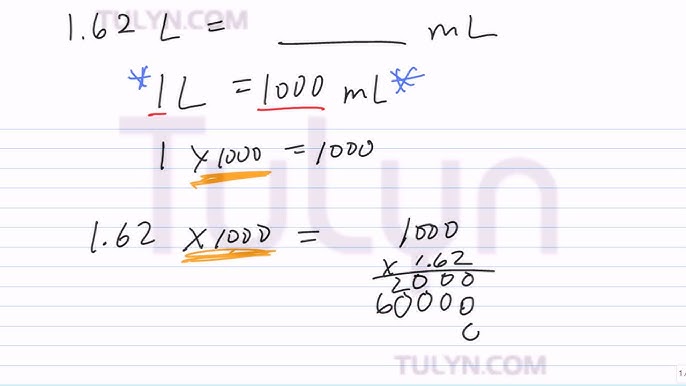 TULYN.COM
1.62 L = ______ mL
*1L = 1000 mL*
1 x1000 = 1000
Tulyn
1.62 x1000 = 1000
x 1.62
2000
60000
0
TULYN.COM